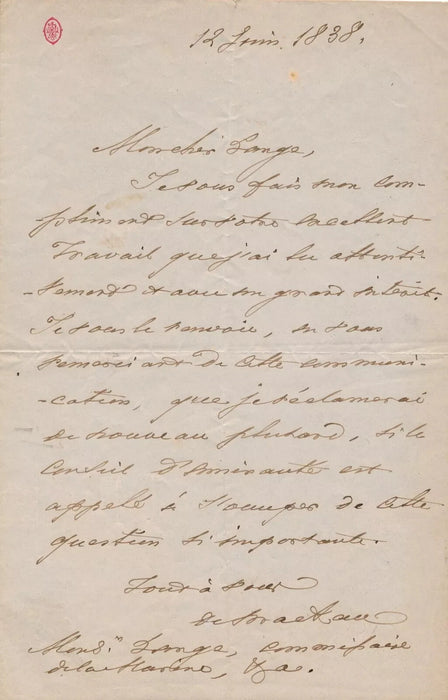 12 Juin. 1838.
Mon cher Lange,
Je vous fais mon com-
pliment sur votre excellent
Travail que j'ai lu attenti-
-vement & avec un grand intérêt.
Je vous le renvoie, en vous
remerciant de cette communi-
-cation, que je réclamerai
de nouveau plutard, si le
Conseil d'Amirauté est
appelé à s'occuper de cette
question si importante.
Tout à vous
Monsr. Lange, commissaire
de la Marine, &a.